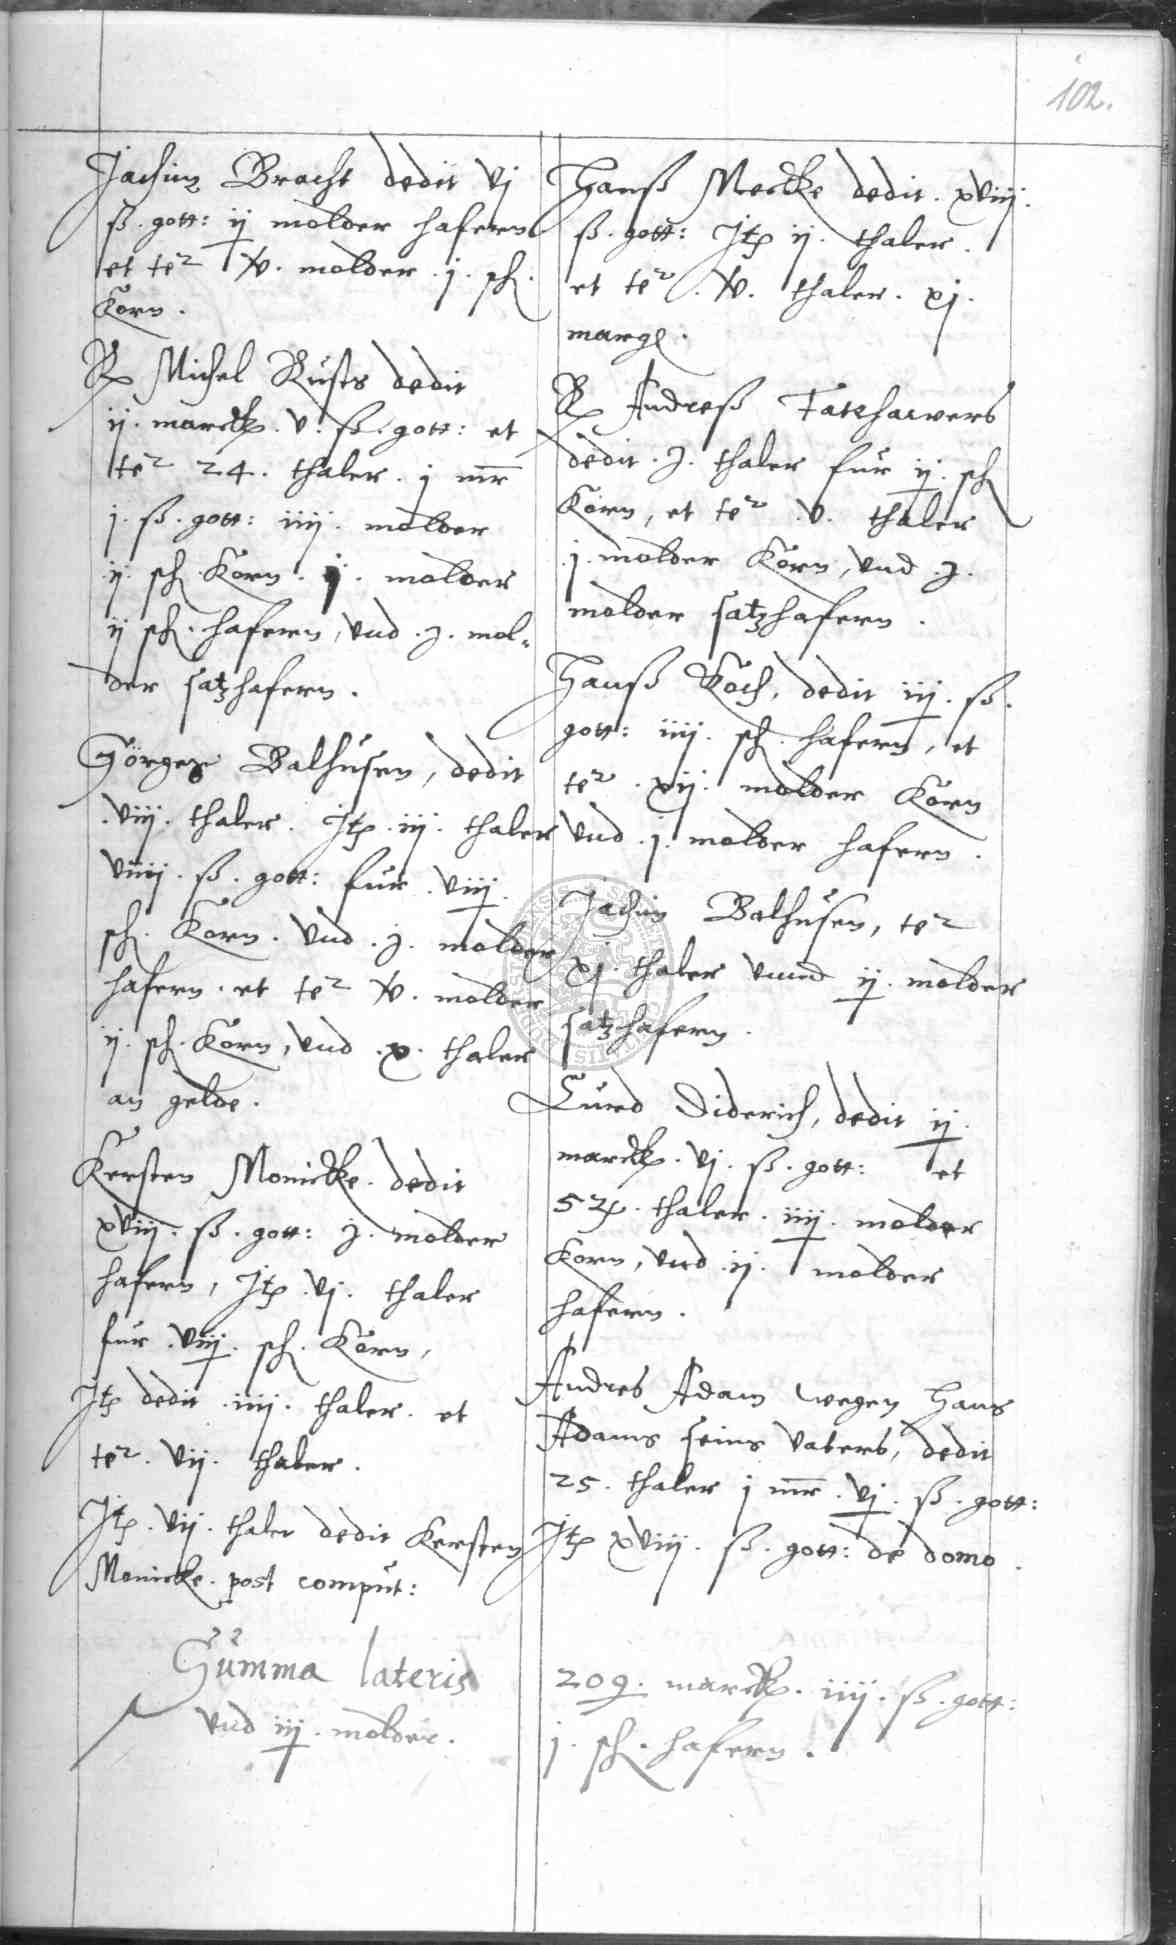 102.
Jachim Bracht dedit vj
ß. gott: ij molder hafern
et te2 xv. molder. j. sch.
Korn.
R Michel Rusts dedit
ij. marck. v. ß. gott: et
te2 24. thaler. j mr
j. ß. gott: iiij. molder
ij. sch. Korn. j. molder
ij sch. hafern, vnd. j. mol-
der satzhafern.
Görgen Balhusen, dedit
viij. thaler. Jtem. iij. thaler
viiij. ß. gott: fur. viij.
sch. Korn. vnd. j. molder
hafern. et te2 xv. molder
ij. sch. Korn, vnd. x. thaler
an gelde.
Kersten Monicke. dedit
xviij. ß. gott: j. molder
hafern, Jtem. vj. thaler
fur. viij. sch. Korn,
Jtem dedit. iiij. thaler. et
te2. vij. thaler.
Jtem. vij. thaler dedit Kersten
Monicke. post comput:
Hanß Mecke dedit. xviij.
ß. gott: Jtem ij. thaler.
et te2. xv. thaler. xj.
marg.
R Andreß
dedit. j. thaler fur ij. sch
Korn, et te2. v. thaler
.j. molder Korn, vnd. j.
molder satzhafern.
Hanß Koch, dedit iij. ß.
gott: iiij. sch. hafern, et
te2. xij. molder Korn
vnd. j. molder hafern.
Jachim Balhusen, te2
xj. thaler vnnd ij. molder
satzhafern.
Curd Diderich, dedit ij.
marck. vj. ß. gott: et
thaler. iiij. molder
Korn, vnd. ij. molder
hafern.
Andres Adam wegen Hans
Adams seins vaters, dedit
25. thaler j mr. vj. ß. gott:
Jtem xviij. ß. gott: de domo.
Summa lateris 209. marck. iiij. ß. gott:
vnd iij. molder. j. sch. hafern.